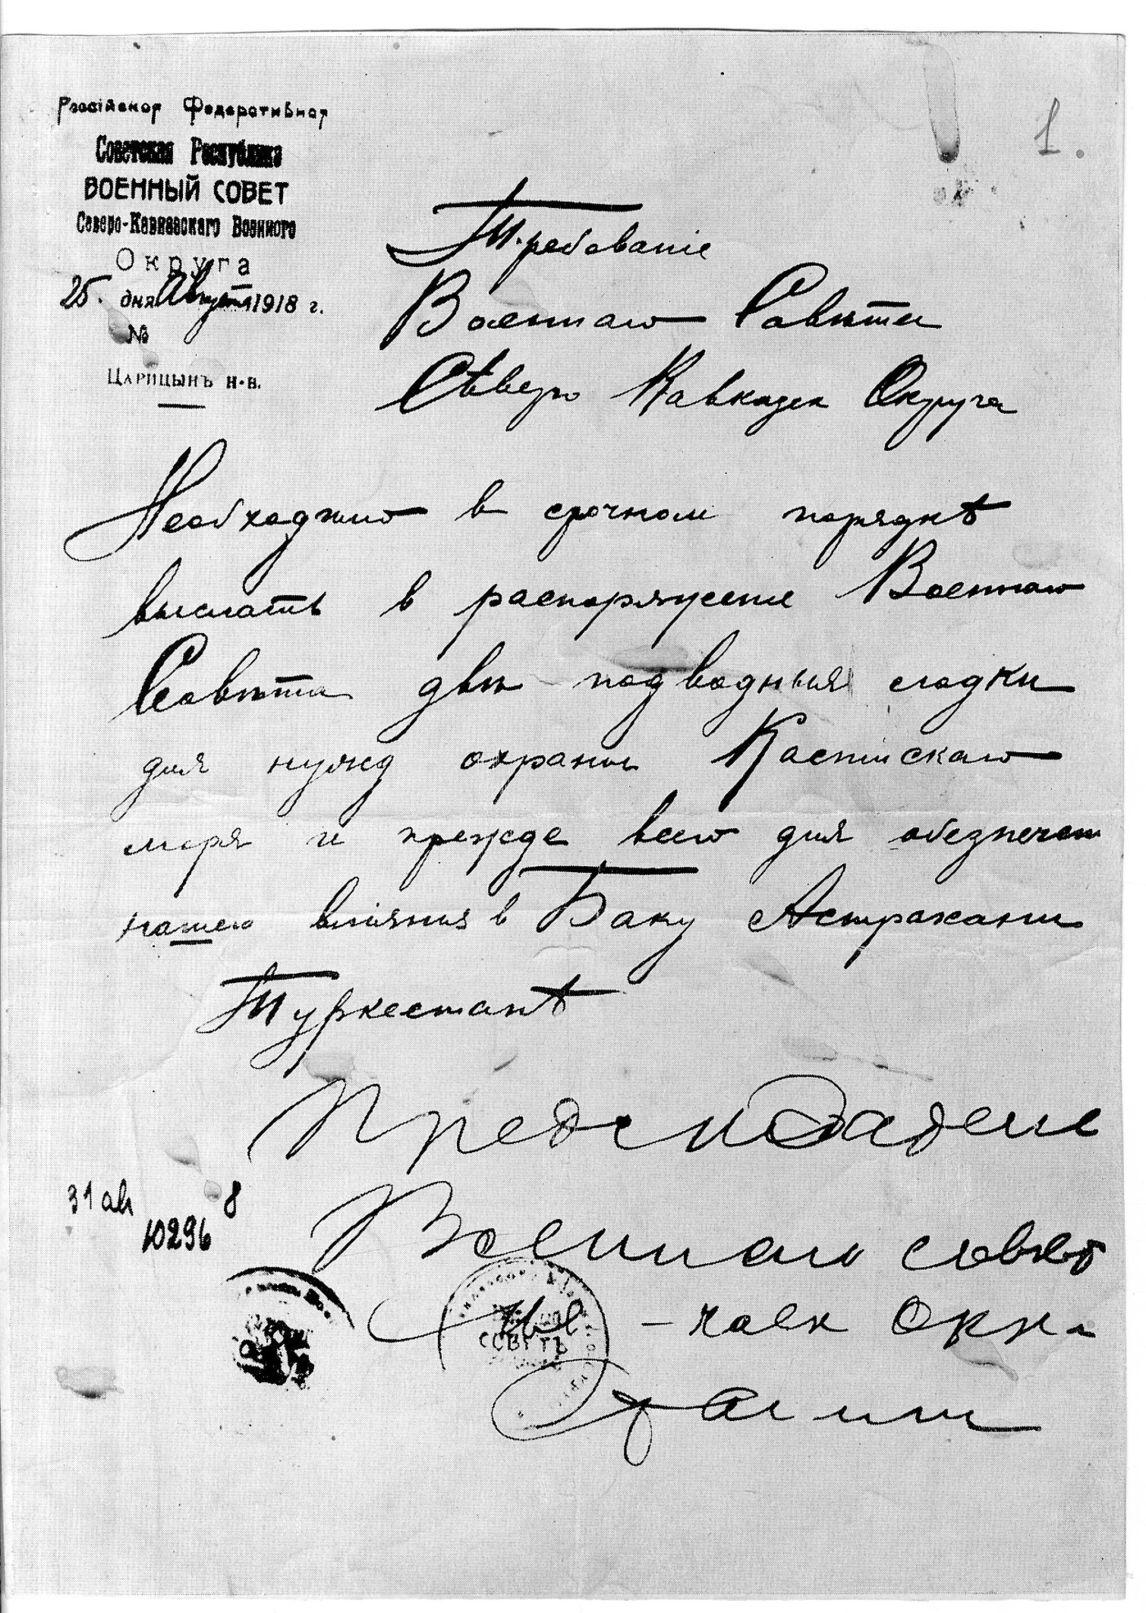 Россiйская Федеративная
1.
Советская Республика
ВОЕННЫЙ СОВЕТ
Северо-Кавказскаго Военного
Округа
25. дня Августа 1918 г.
№
Царицынъ н-в.
Требованiе
Военнаго Совѣта
Сѣверо Кавказск Округа
Необходимо в срочном порядкѣ
выслать в распоряжение Военнаго
Совѣта двѣ подводныя лодки
для нужд охраны Каспiскаго
моря и прежде всего для обезпечен
нашего влiяния в Баку Астрахани
Туркестанѣ
Председателе
Военнаго совет
Сѣв – кавк Окр
Сталин
31 ав 8
10296
СОВѢТЪ